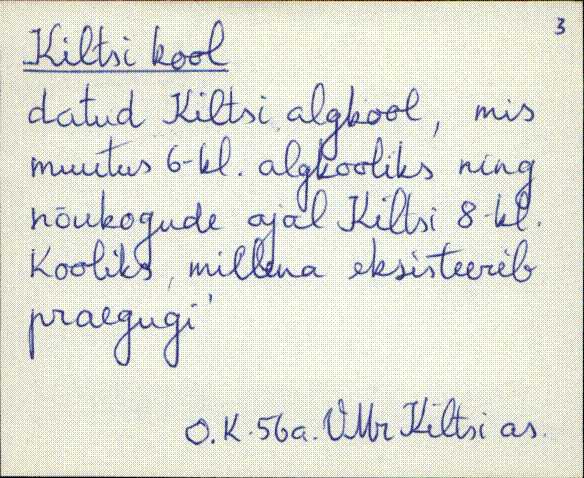 3
Kiltsi kool
datud Kiltsi algkool, mis
muutus 6-kl. algkooliks ning
nõukogude ajal Kiltsi 8-kl.
Kooliks, millena eksisteerib
praegugi
O.K. 56a. VMr Kiltsi as.